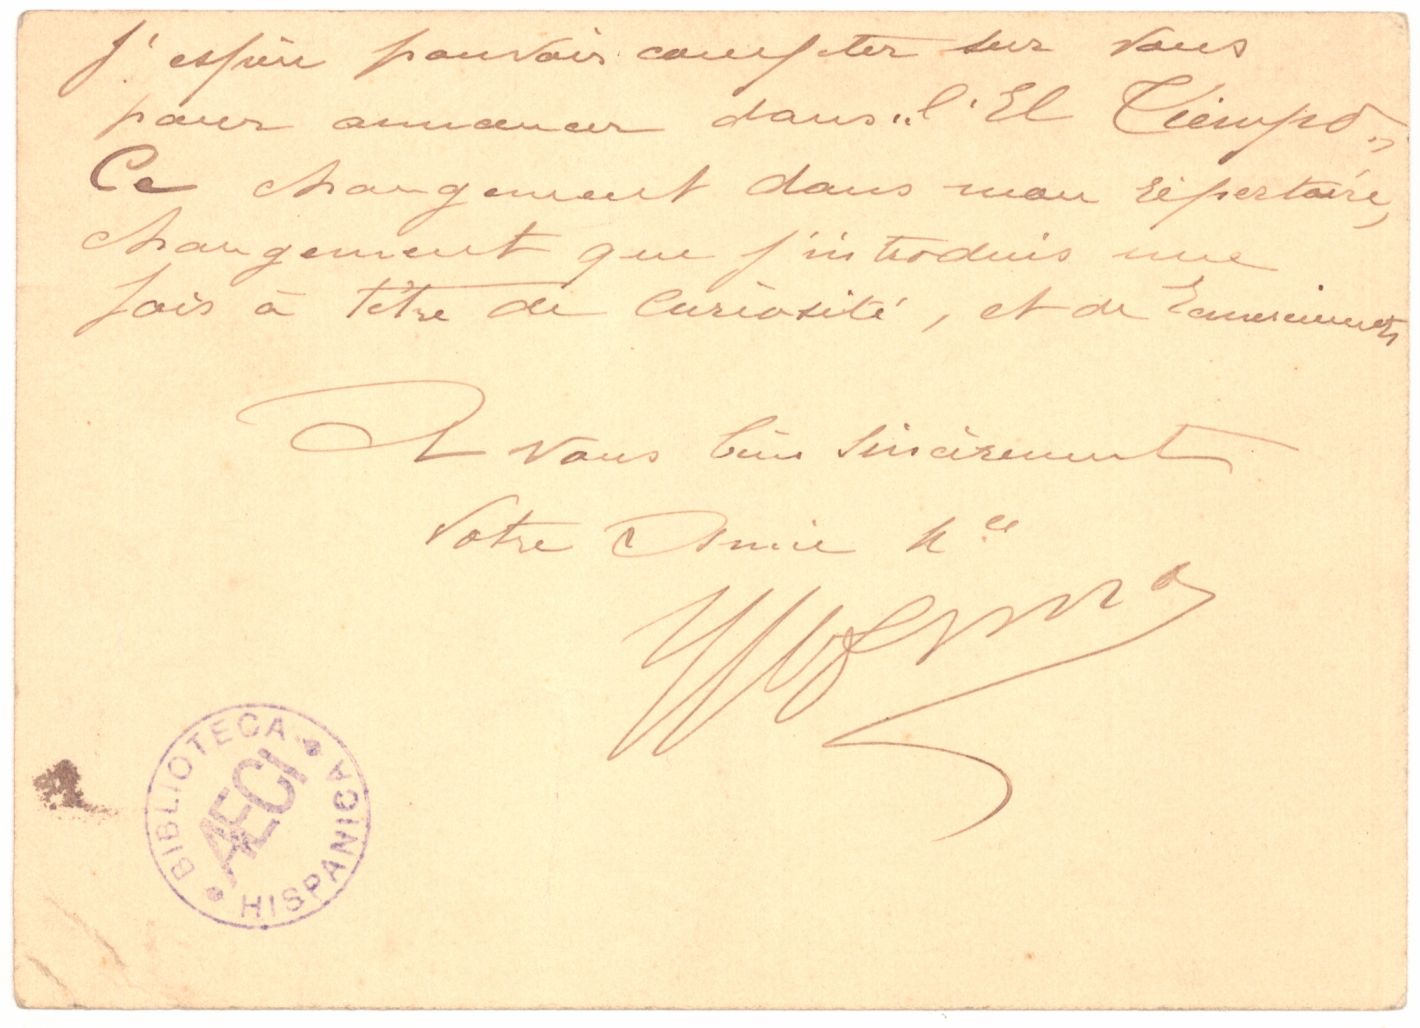 J'espère pouvoir compter sur vous
pour annoncer dans „l'El Tiempo„
Ce changement dans mon répertoire,
changement que j'introduis une
fois à titre de curiosité, et de
A vous bien sincèrement
Votre Amie
BIBLIOTECA HISPANICA
AECI